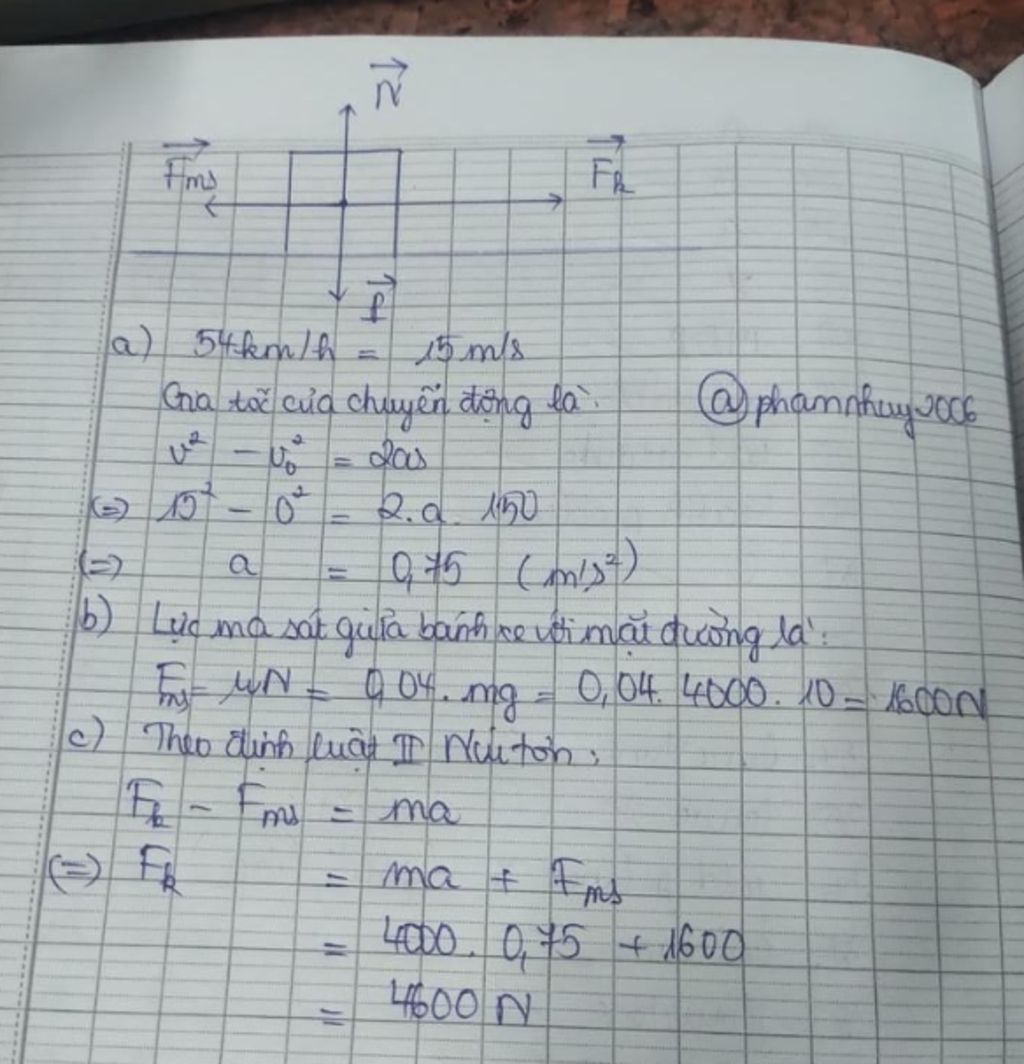 N
Fms
Fk
P
a) 54km/h = 15 m/s
Gia tốc của chuyển động là:
@phamnhuy2006
v² - v₀² = 2as
(=) 15² - 0² = 2.a. 150
(=) a = 0,75 (m/s²)
b) Lực ma sát giữa bánh xe với mặt đường là:
Fms = μN = 0,04. mg = 0,04. 4000. 10 = 1600N
c) Theo định luật II Niu tơn:
Fk - Fms = ma
(=) Fk = ma + Fms
= 4000. 0,75 + 1600
= 4600 N